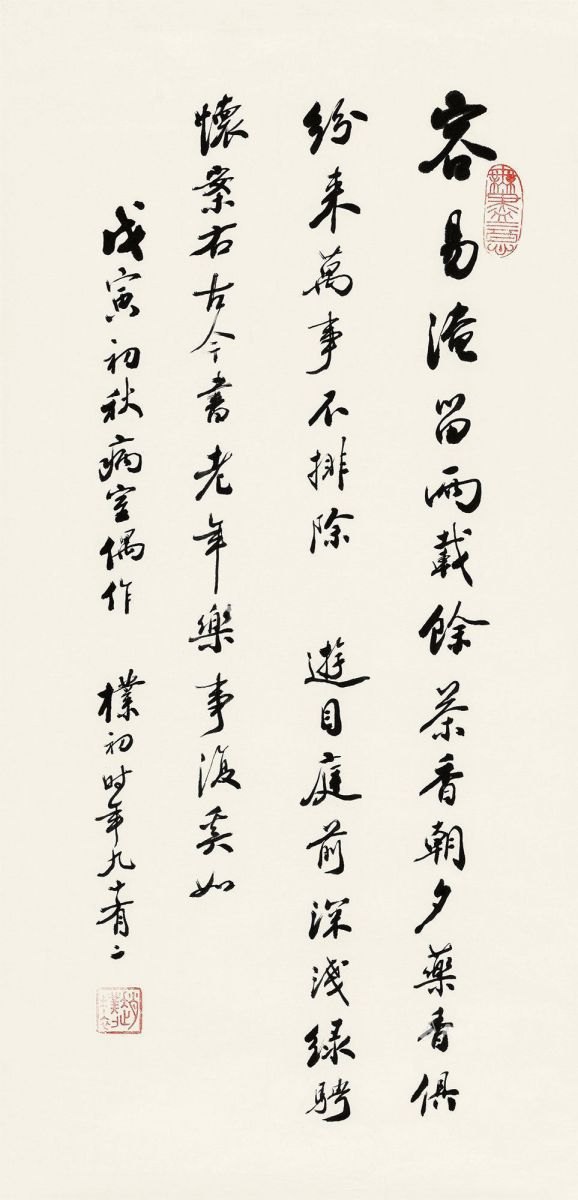 容易淹留兩載餘茶香朝夕藥香俱
紛来萬事不排除 遊目庭前深淺绿騁
懷案右古今書老年樂事復奚如
戊寅初秋病室偶作 樸初时年九十有二